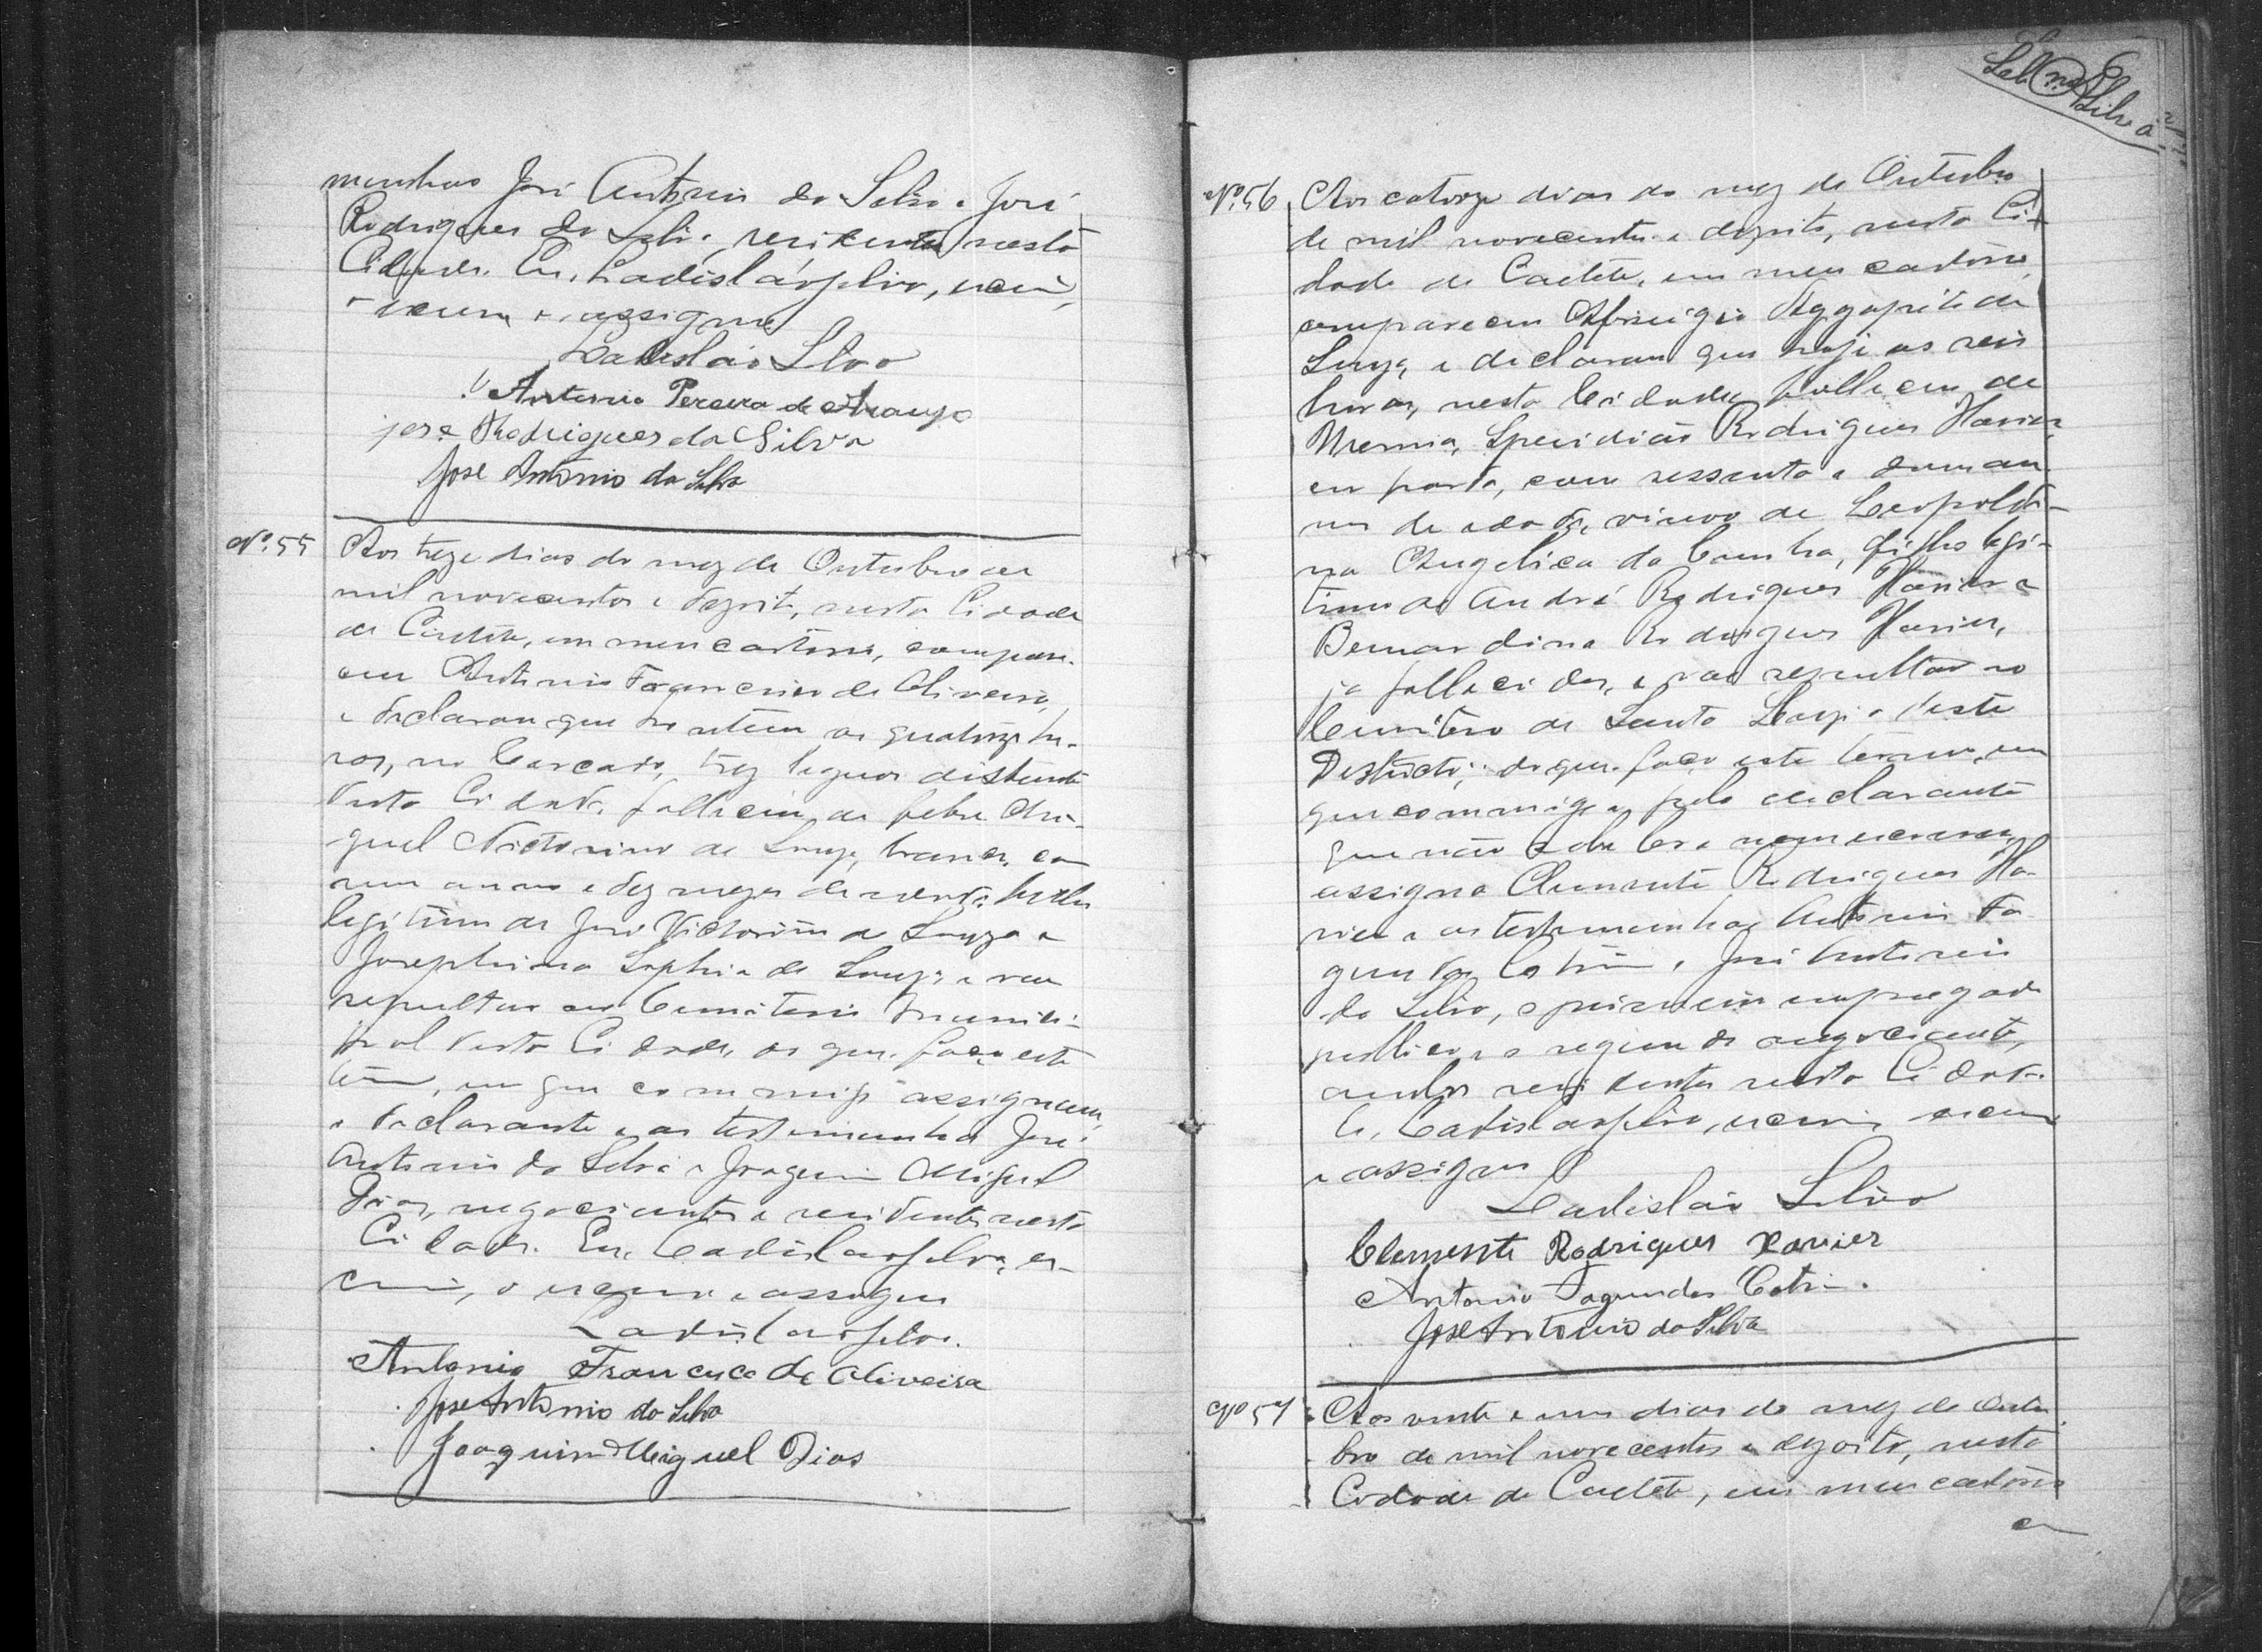 munhas José Antonio da Silva e José
Rodrigues da Silva, residentes nesta
Cidade. Eu, Ladisláo Silva, escri,
escrevi e assigno
Ladisláo Silva
Antonio Pereira de Araujo
jose Rodrigues da Silva
Jose Antonio da Silva
Nº. 55 Aos treze dias do mez de Outubro de
mil novecentos e dezoito, nesta Cidade
de Caeteté, em meu cartorio, compare-
ceu Antonio Francisco de Oliveira,
e declarou que hontem as quatorze ho-
ras, no Cercado, trez leguas distante
desta Cidade, falleceu de febre
Victorino de Souza, branco, com
um anno e dez mezes de edade, filho
legitimo de José Victorino de Souza e
Josephina Sophia de Souza e vae
sepultar no Cemiterio Munici-
pal desta Cidade, do que faço este
termo, em que commigo assignam,
o declarante e as testemunhas José
Antonio da Silva e Joaquim Miguel
Dias, negociantes e residentes nesta
Cidade. Eu, Ladisláo Silva, es-
crivi, o escrevi e assigno
Ladisláo Silva.
Antonio Francisco de Oliveira
Jose Antonio da Silva
Joaquim Miguel Dias
Nº. 56 Aos catorze dias do mez de Outubro
de mil novecentos e dezoito, nesta Ci-
dade de Caeteté, em meu cartorio,
compareceu Agapito de
Souza, e declarou que hoje as seis
horas, nesta Cidade, falleceu de
Uremia, Speridião Rodrigues Xavier,
com sessenta e um an-
nos de edade, viuvo de Leopoldi-
na Angelica da Cunha, filho legi-
timo de André Rodrigues Xavier e
Bernardina Rodrigues Xavier,
ja fallecidos, e vae sepultar no
Cemiterio de Santa deste
Districto; do que faço este termo, em
que commigo, pelo declarante
que não sabe ler e nem escrever,
assigna Clemente Rodrigues Xa-
vier e as testemunhas Antonio Fa-
gundes Cotrim e José Antonio
da Silva, o primeiro empregado
publico e o segundo negociante,
ambos residentes nesta Cidade.
Eu, Ladisláo Silva, escrivi, escrevi
e assigno
Ladisláo Silva
Clemente Rodrigues Xavier
Antonio Fagundes Cotrim.
Jose Antonio da Silva
Nº 57 Aos vinte e um dias do mez de Outu
bro de mil novecentos e dezoito, nesta
Cidade de Caeteté, em meu cartorio